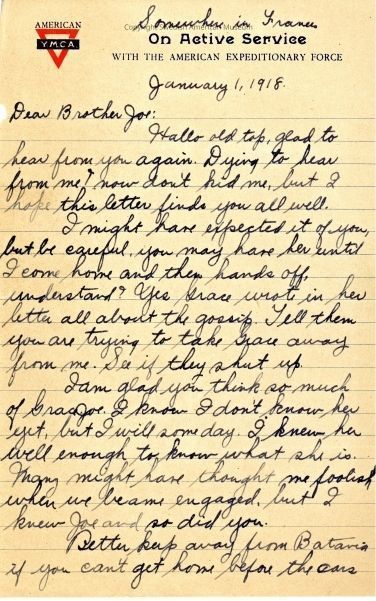 Somewhere in France
AMERICAN
YMCA
On Active Service
WITH THE AMERICAN EXPEDITIONARY FORCE
January 1, 1918.
Dear Brother Joe:
Hallo old top, glad to
hear from you again. Dying to hear
from me? now don't kid me, but I
hope this letter finds you all well.
I might have expected it of you,
but be careful, you may have her until
I come home and then hands off,
understand? Yes Grace wrote in her
letter all about the gossip. Tell them
you are trying to take Grace away
from me. See if they shut up.
I am glad you think so much
of Grace Joe. I know I don't know her
yet, but I will some day. I knew her
well enough to know what she is.
Many might have thought me foolish
when we became engaged, but I
knew Joe and so did you.
Better keep away from Batavia
if you can't get home before the cars